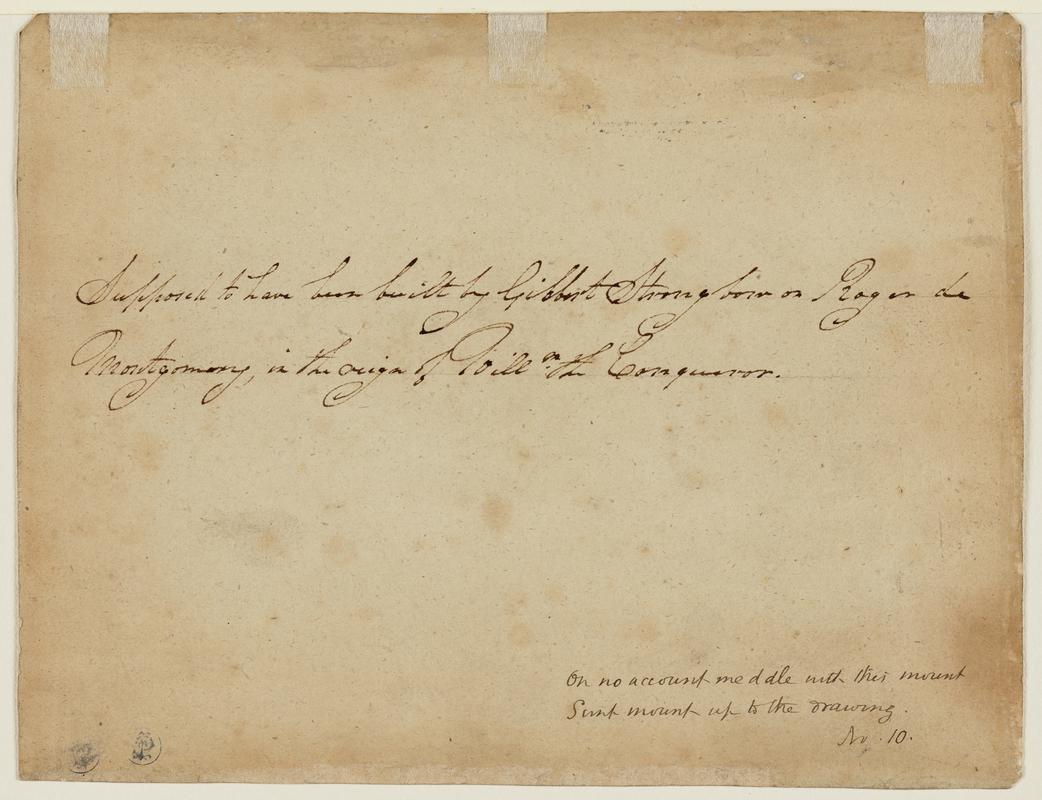 Supposed to have been built by Gilbert Strongbow or Roger de
Montgomery, in the reign of Willm the Conqueror.
On no account meddle with this mount
Sunk mount up to the drawing.
No. 10.